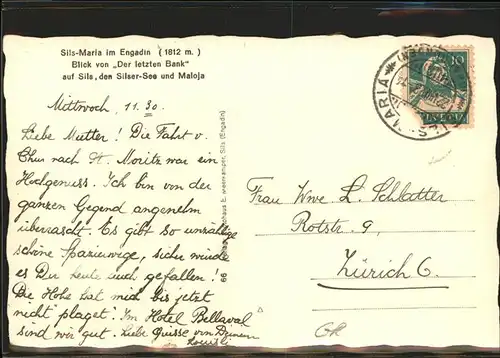 Sils-Maria im Engadin (1812 m.)
Blick von „Der letzten Bank"
auf Sils, den Silser-See und Maloja
Mittwoch, 11.30.
Liebe Mutter! Die Fahrt v.
Chur nach St. Moritz war ein
Hochgenuss. Ich bin von der
ganzen Gegend angenehm
überrascht. Es gibt so unzählige
schöne Spazierwege, sicher würde
es Dir heute auch gefallen!
Die Höhe hat mich bis jetzt
nicht plaget. Im Hotel Bellaval
sind wir gut. Liebe Grüsse von Deinem
66
Sils (Engadin)
10
HELVETIA
SILS-MARIA
Frau Wwe L. Schlatter
Rotstr. 9,
Zürich 6.